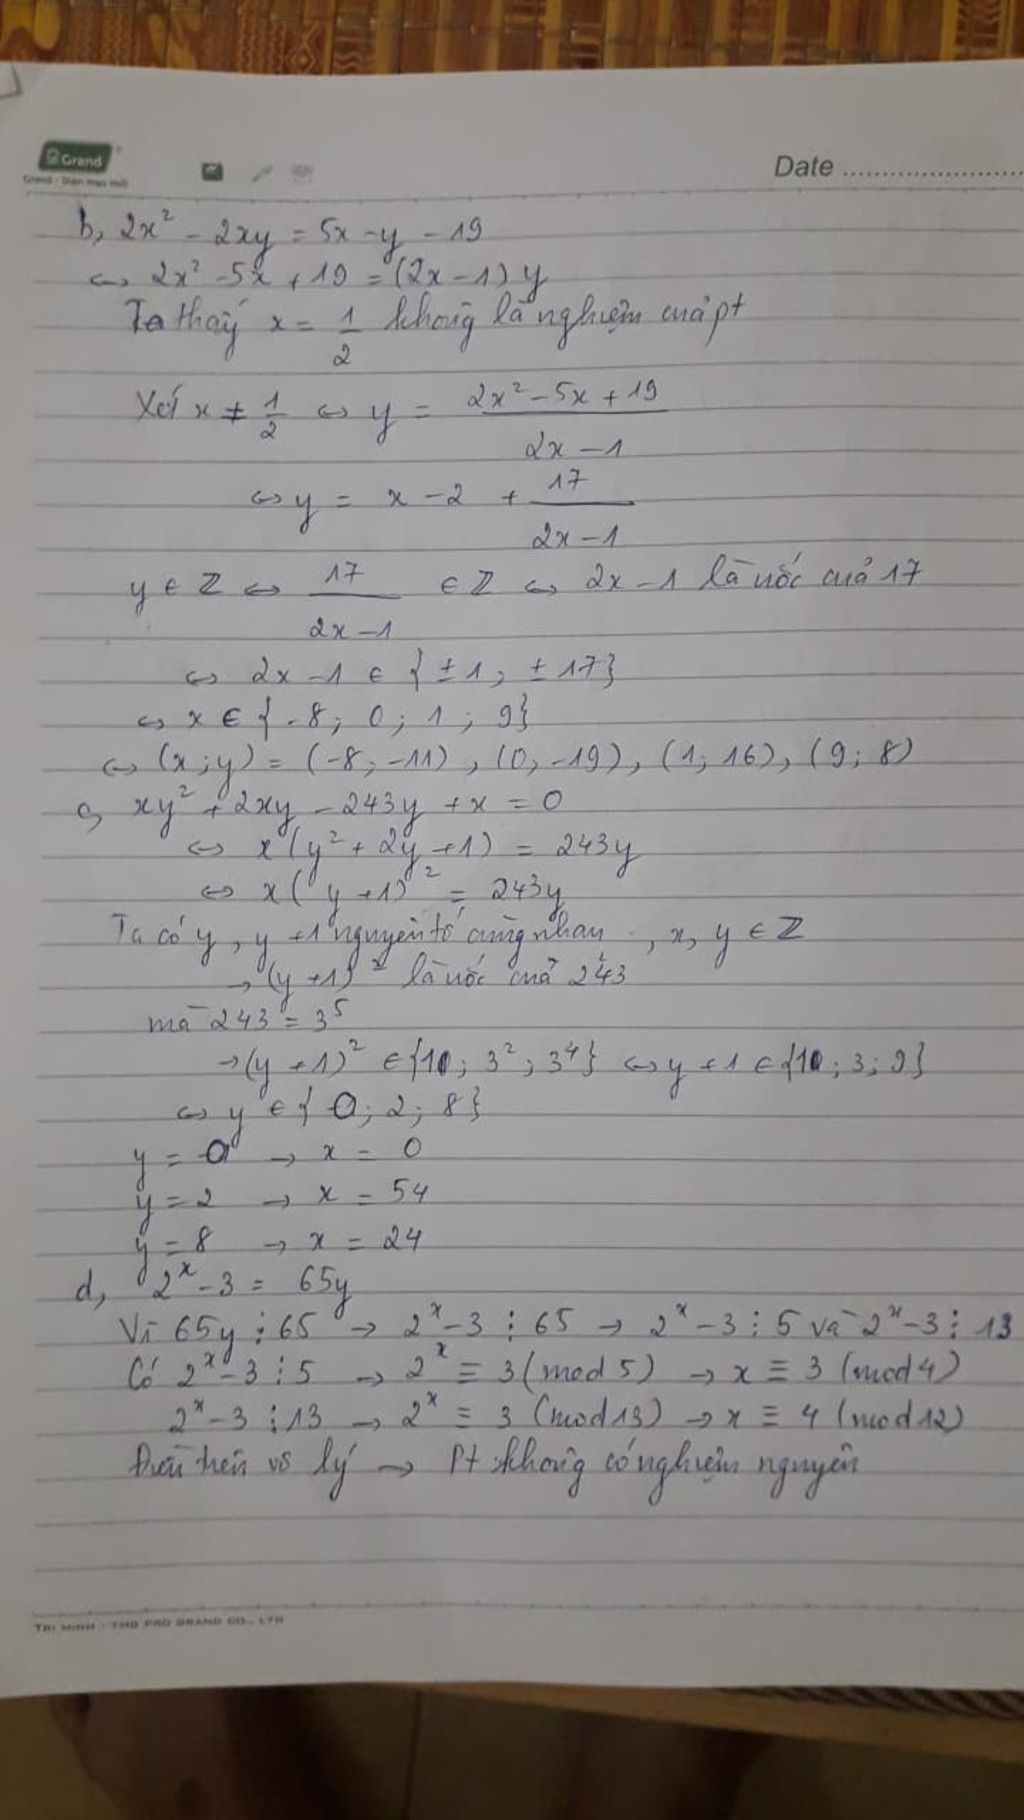 Grand
Date
b, 2x² - 2xy = 5x - y - 19
⇔ 2x² - 5x + 19 = (2x - 1) y
Ta thấy x = 1/2 không là nghiệm của pt
Xét x ≠ 1/2 ⇔ y = (2x² - 5x + 19)/(2x - 1)
⇔ y = x - 2 + 17/(2x - 1)
y ∈ Z ⇔ 17/(2x - 1) ∈ Z ⇔ 2x - 1 là ước của 17
⇔ 2x - 1 ∈ {±1; ±17}
⇔ x ∈ {-8; 0; 1; 9}
⇔ (x; y) = (-8; -11), (0; -19), (1; 16), (9; 8)
c, xy² + 2xy - 243y + x = 0
⇔ x(y² + 2y + 1) = 243y
⇔ x(y + 1)² = 243y
Ta có y, y + 1 nguyên tố cùng nhau, x, y ∈ Z
→ (y + 1)² là ước của 243
mà 243 = 3⁵
→ (y + 1)² ∈ {1; 3²; 3⁴} ⇔ y + 1 ∈ {1; 3; 9}
⇔ y ∈ {0; 2; 8}
y = 0 → x = 0
y = 2 → x = 54
y = 8 → x = 24
d, 2ˣ - 3 = 65y
Vì 65y ⋮ 65 → 2ˣ - 3 ⋮ 65 → 2ˣ - 3 ⋮ 5 và 2ˣ - 3 ⋮ 13
Có 2ˣ - 3 ⋮ 5 → 2ˣ ≡ 3 (mod 5) → x ≡ 3 (mod 4)
2ˣ - 3 ⋮ 13 → 2ˣ ≡ 3 (mod 13) → x ≡ 4 (mod 12)
Điều trên vô lý → Pt không có nghiệm nguyên
TRI MINH - TMD PRO GRAND CO., LTD